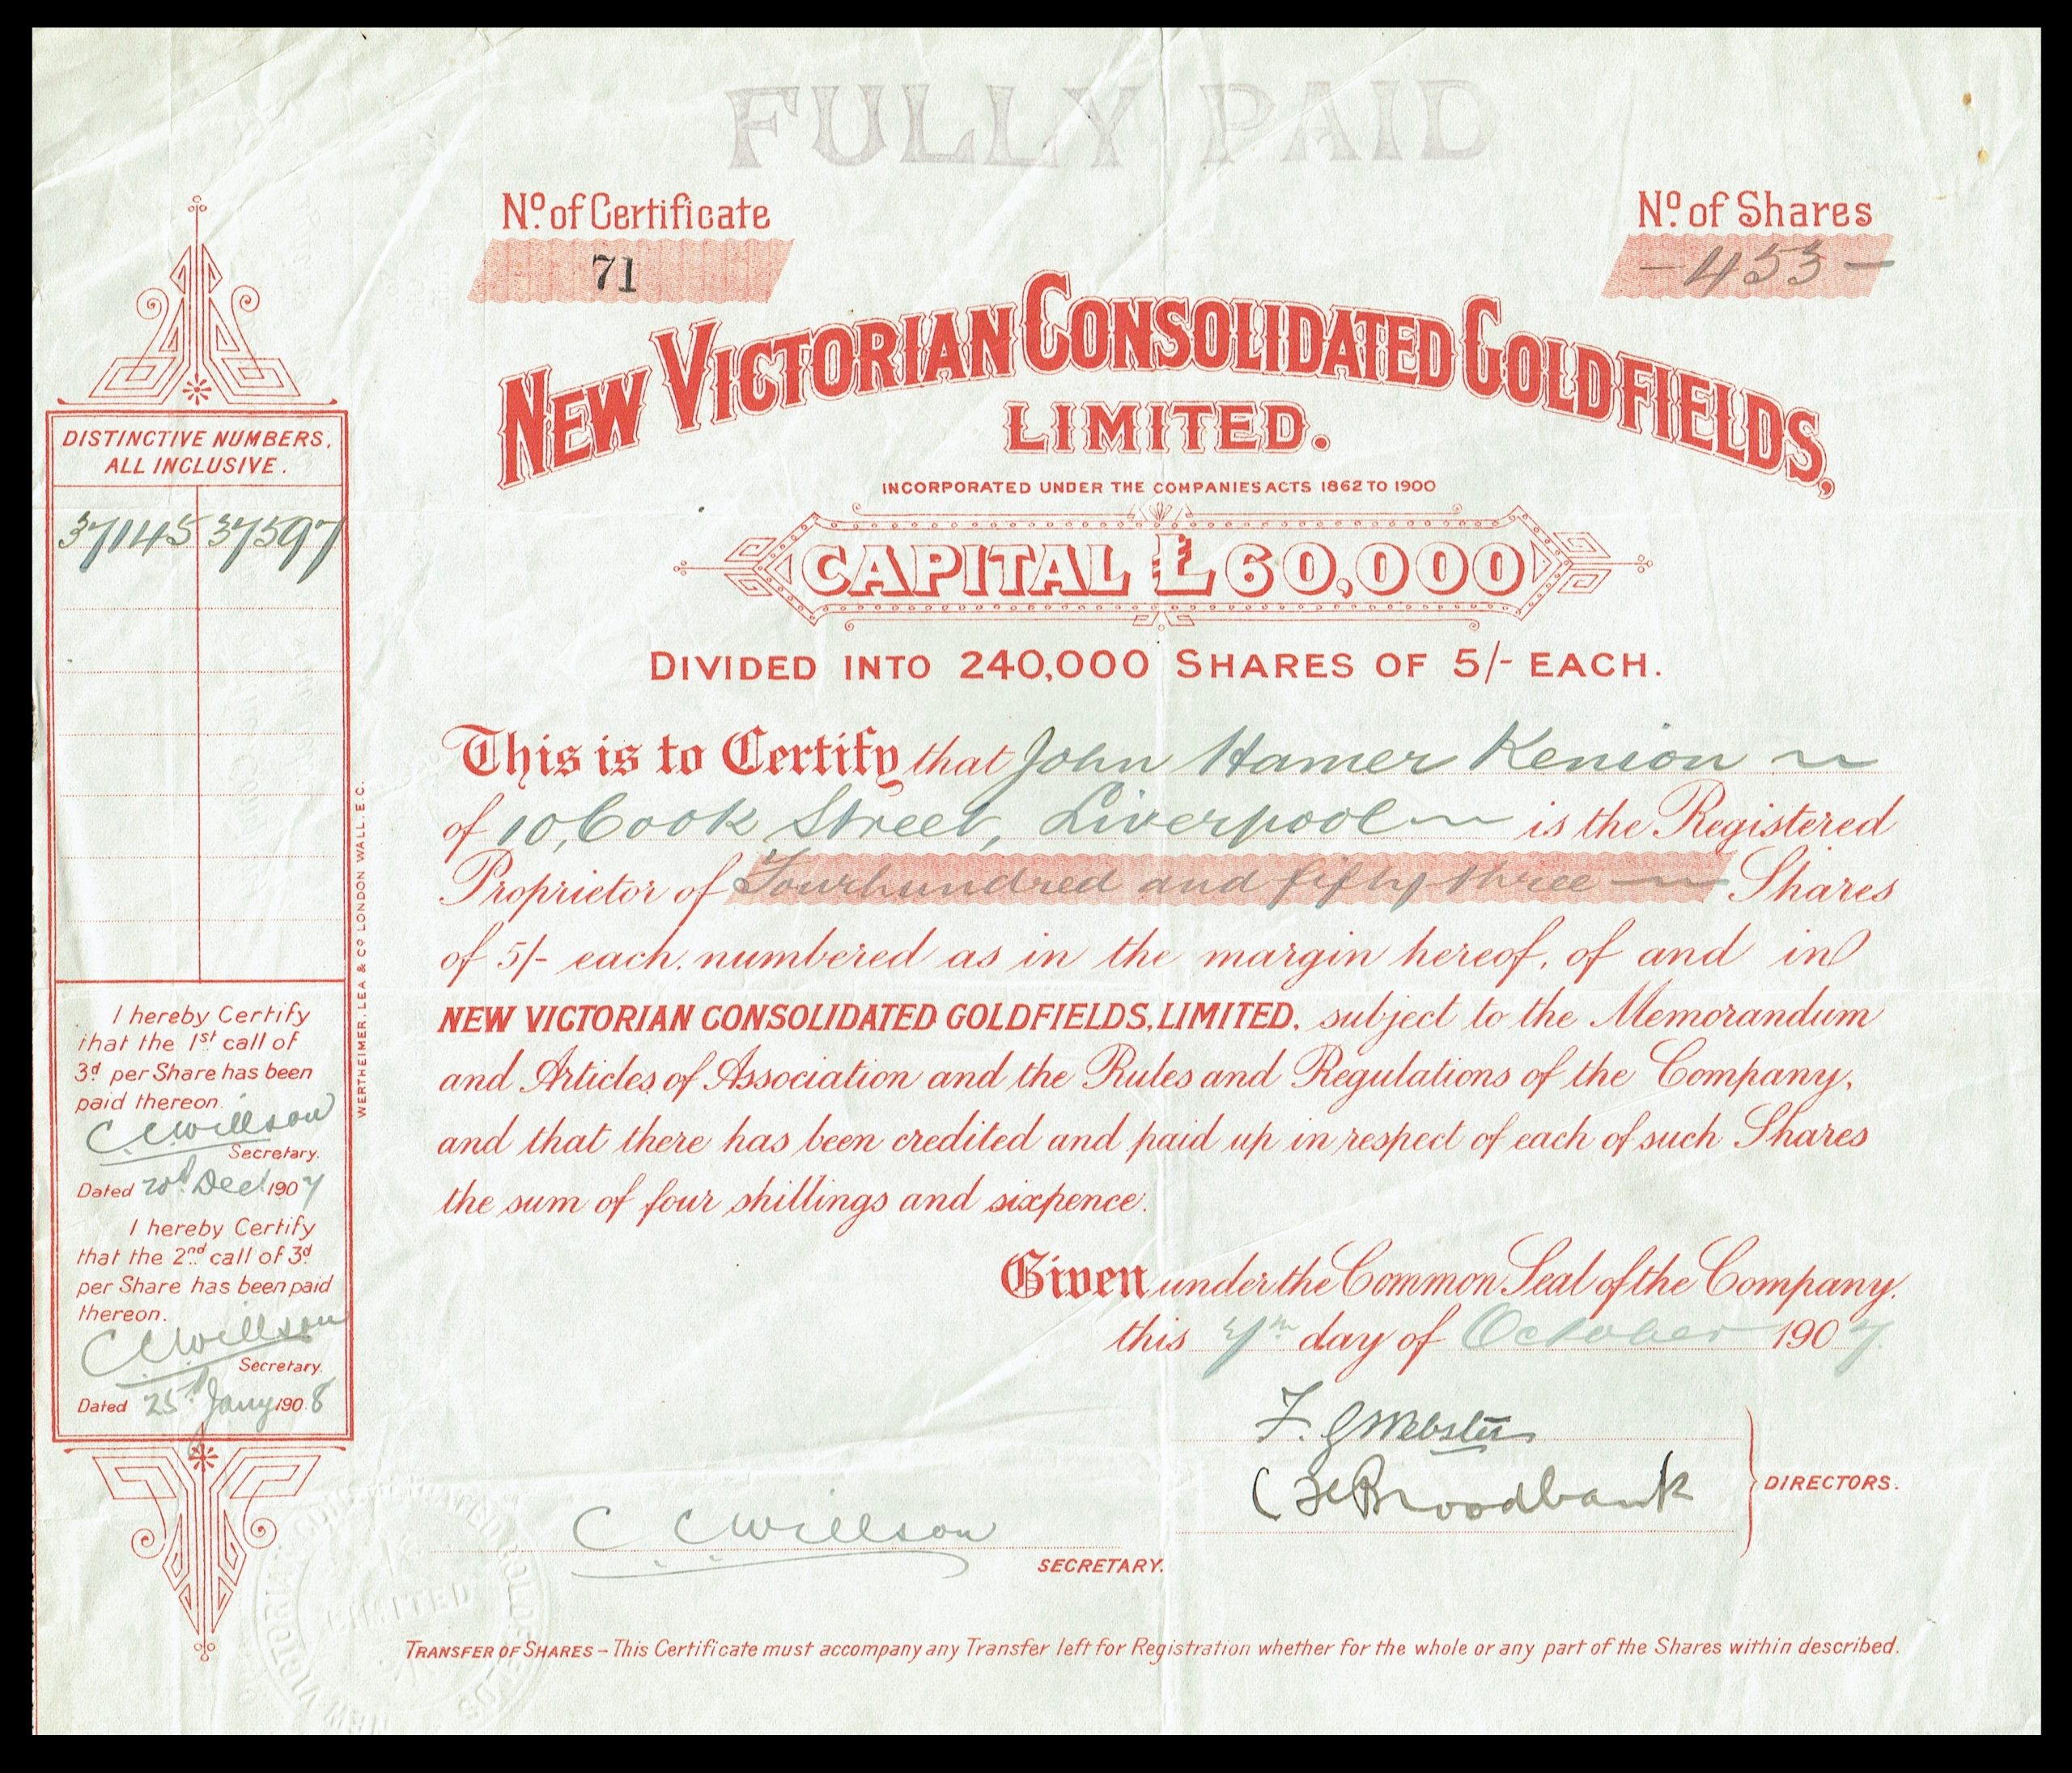 FULLY PAID
No. of Certificate
71
No. of Shares
- 453 -
NEW VICTORIAN CONSOLIDATED GOLDFIELDS,
LIMITED.
INCORPORATED UNDER THE COMPANIES ACTS 1862 TO 1900
CAPITAL £60,000
DIVIDED INTO 240,000 SHARES OF 5/- EACH.
This is to Certify that John Hamer Kenion
of 10, Cook Street, Liverpool is the Registered
Proprietor of Four hundred and fifty three Shares
of 5/- each, numbered as in the margin hereof, of and in
NEW VICTORIAN CONSOLIDATED GOLDFIELDS, LIMITED, subject to the Memorandum
and Articles of Association and the Rules and Regulations of the Company,
and that there has been credited and paid up in respect of each of such Shares
the sum of four shillings and sixpence.
Given under the Common Seal of the Company.
this 7th day of October 1907.
F. G Webster
C F Broodbank
DIRECTORS.
C C Willson
SECRETARY.
TRANSFER OF SHARES – This Certificate must accompany any Transfer left for Registration whether for the whole or any part of the Shares within described.
DISTINCTIVE NUMBERS.
ALL INCLUSIVE.
37145 37597
I hereby Certify
that the 1st call of
3d per Share has been
paid thereon.
C C Willson
Secretary.
Dated 20th Dec 1907
I hereby Certify
that the 2nd call of 3d
per Share has been paid
thereon.
C C Willson
Secretary.
Dated 25th Jany 1908
WERTHEIMER, LEA & CO LONDON WALL, E.C.
NEW VICTORIAN CONSOLIDATED GOLDFIELDS
LIMITED